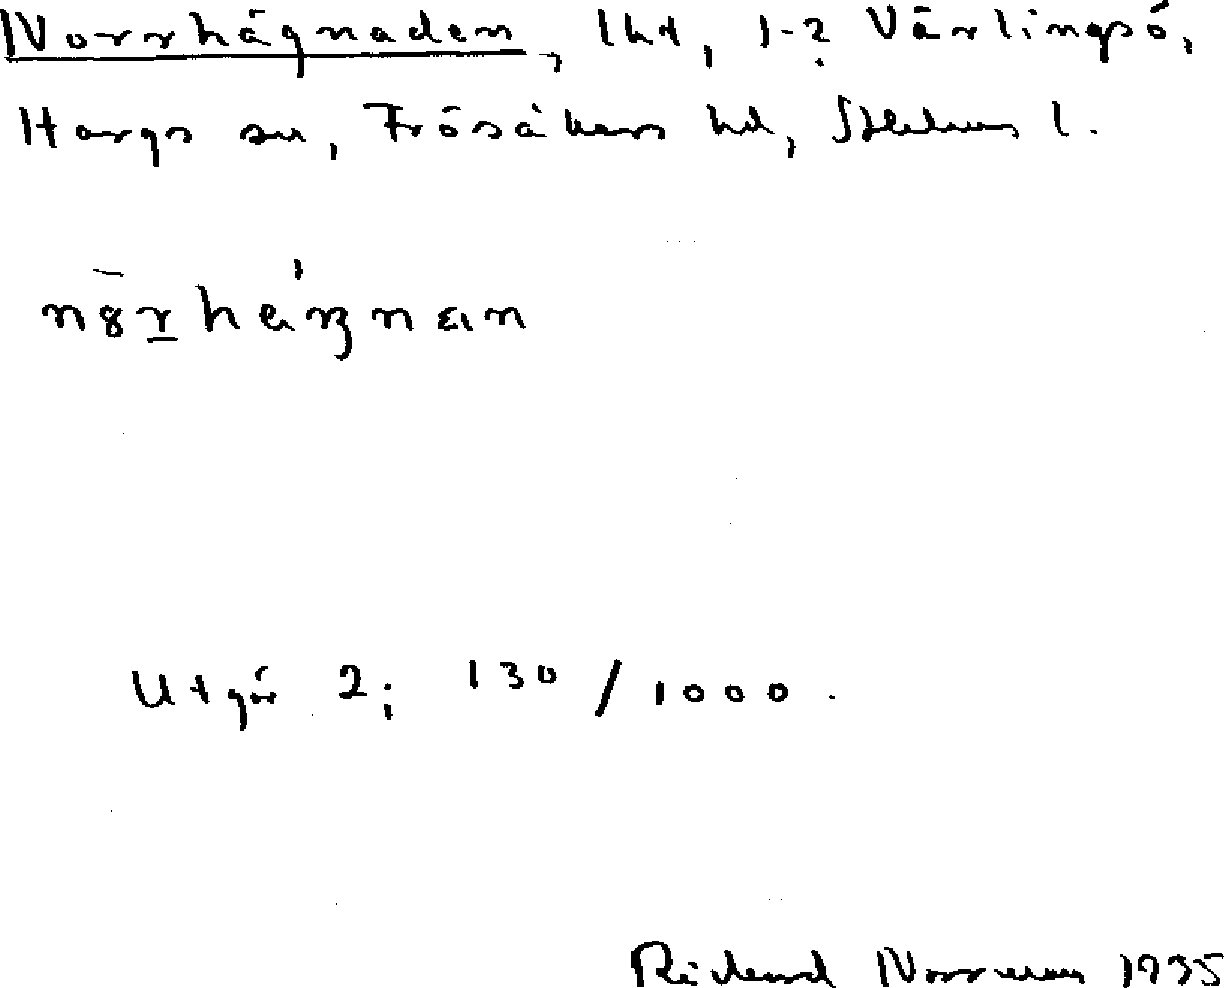 Norrhägnaden, lht, 1-2 Värlingsö,
Hargs sn, Frösåkers hd, Sthlms l.
Utgår 2; 130/1000.
Rickard Norrman 1935